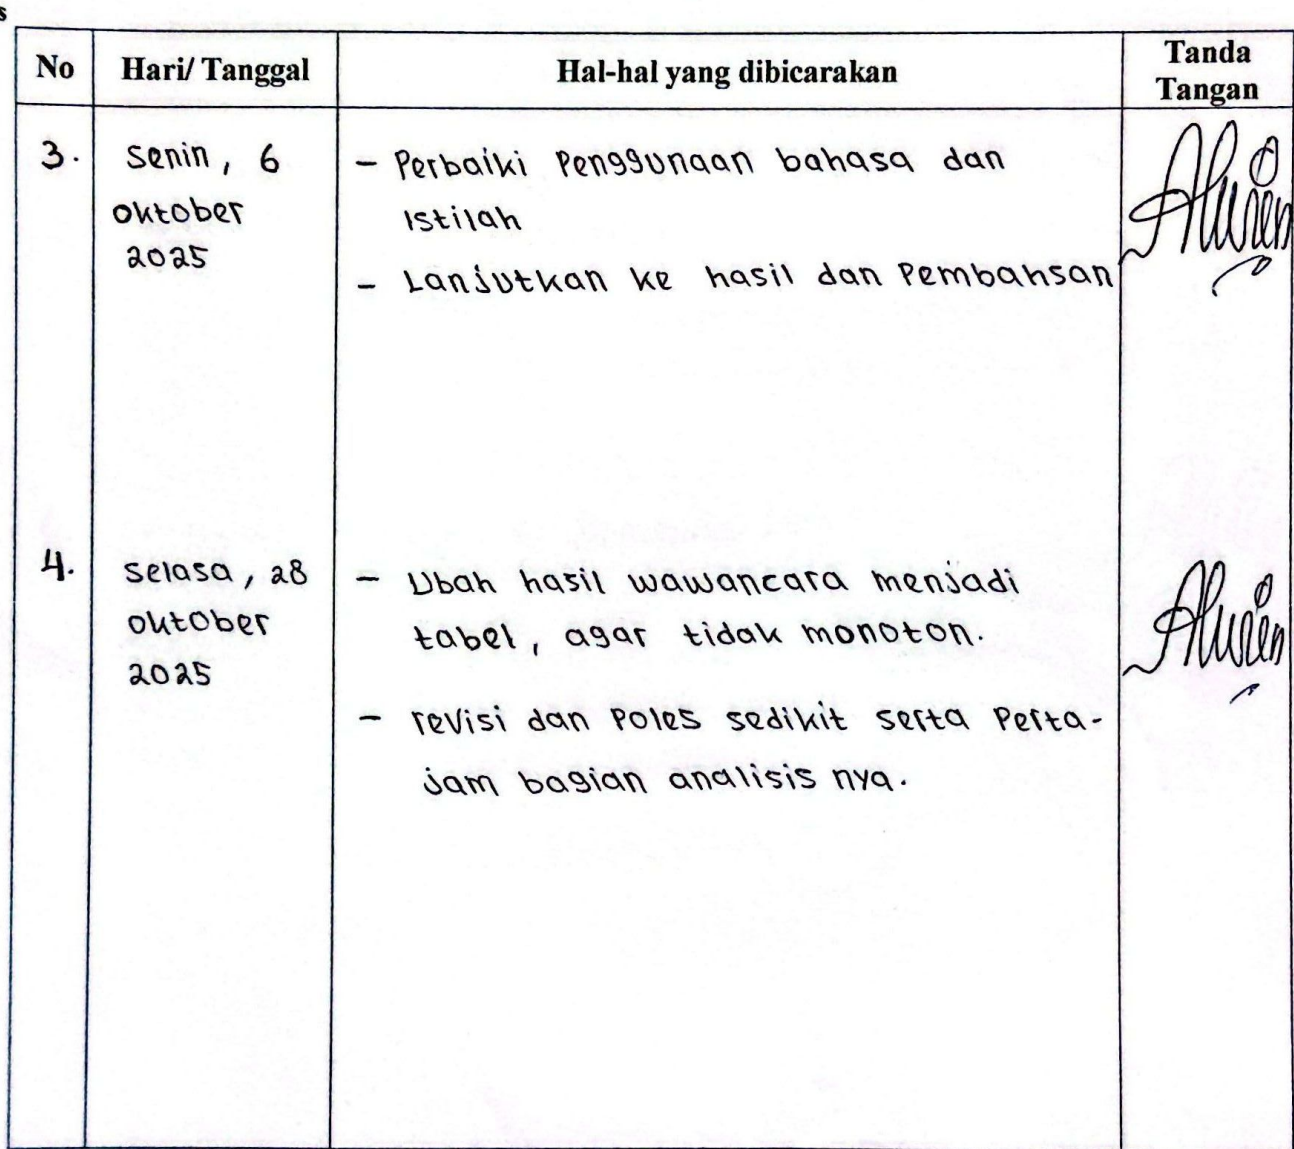 s
No Hari/ Tanggal Hal-hal yang dibicarakan Tanda
Tangan
3. Senin, 6 - Perbaiki Penggunaan bahasa dan
Oktober Istilah
2025 - Lanjutkan ke hasil dan Pembahsan
4. Selasa, 28 - Ubah hasil wawancara menjadi
Oktober tabel, agar tidak monoton.
2025
- revisi dan Poles sedikit serta Perta-
jam bagian analisis nya.